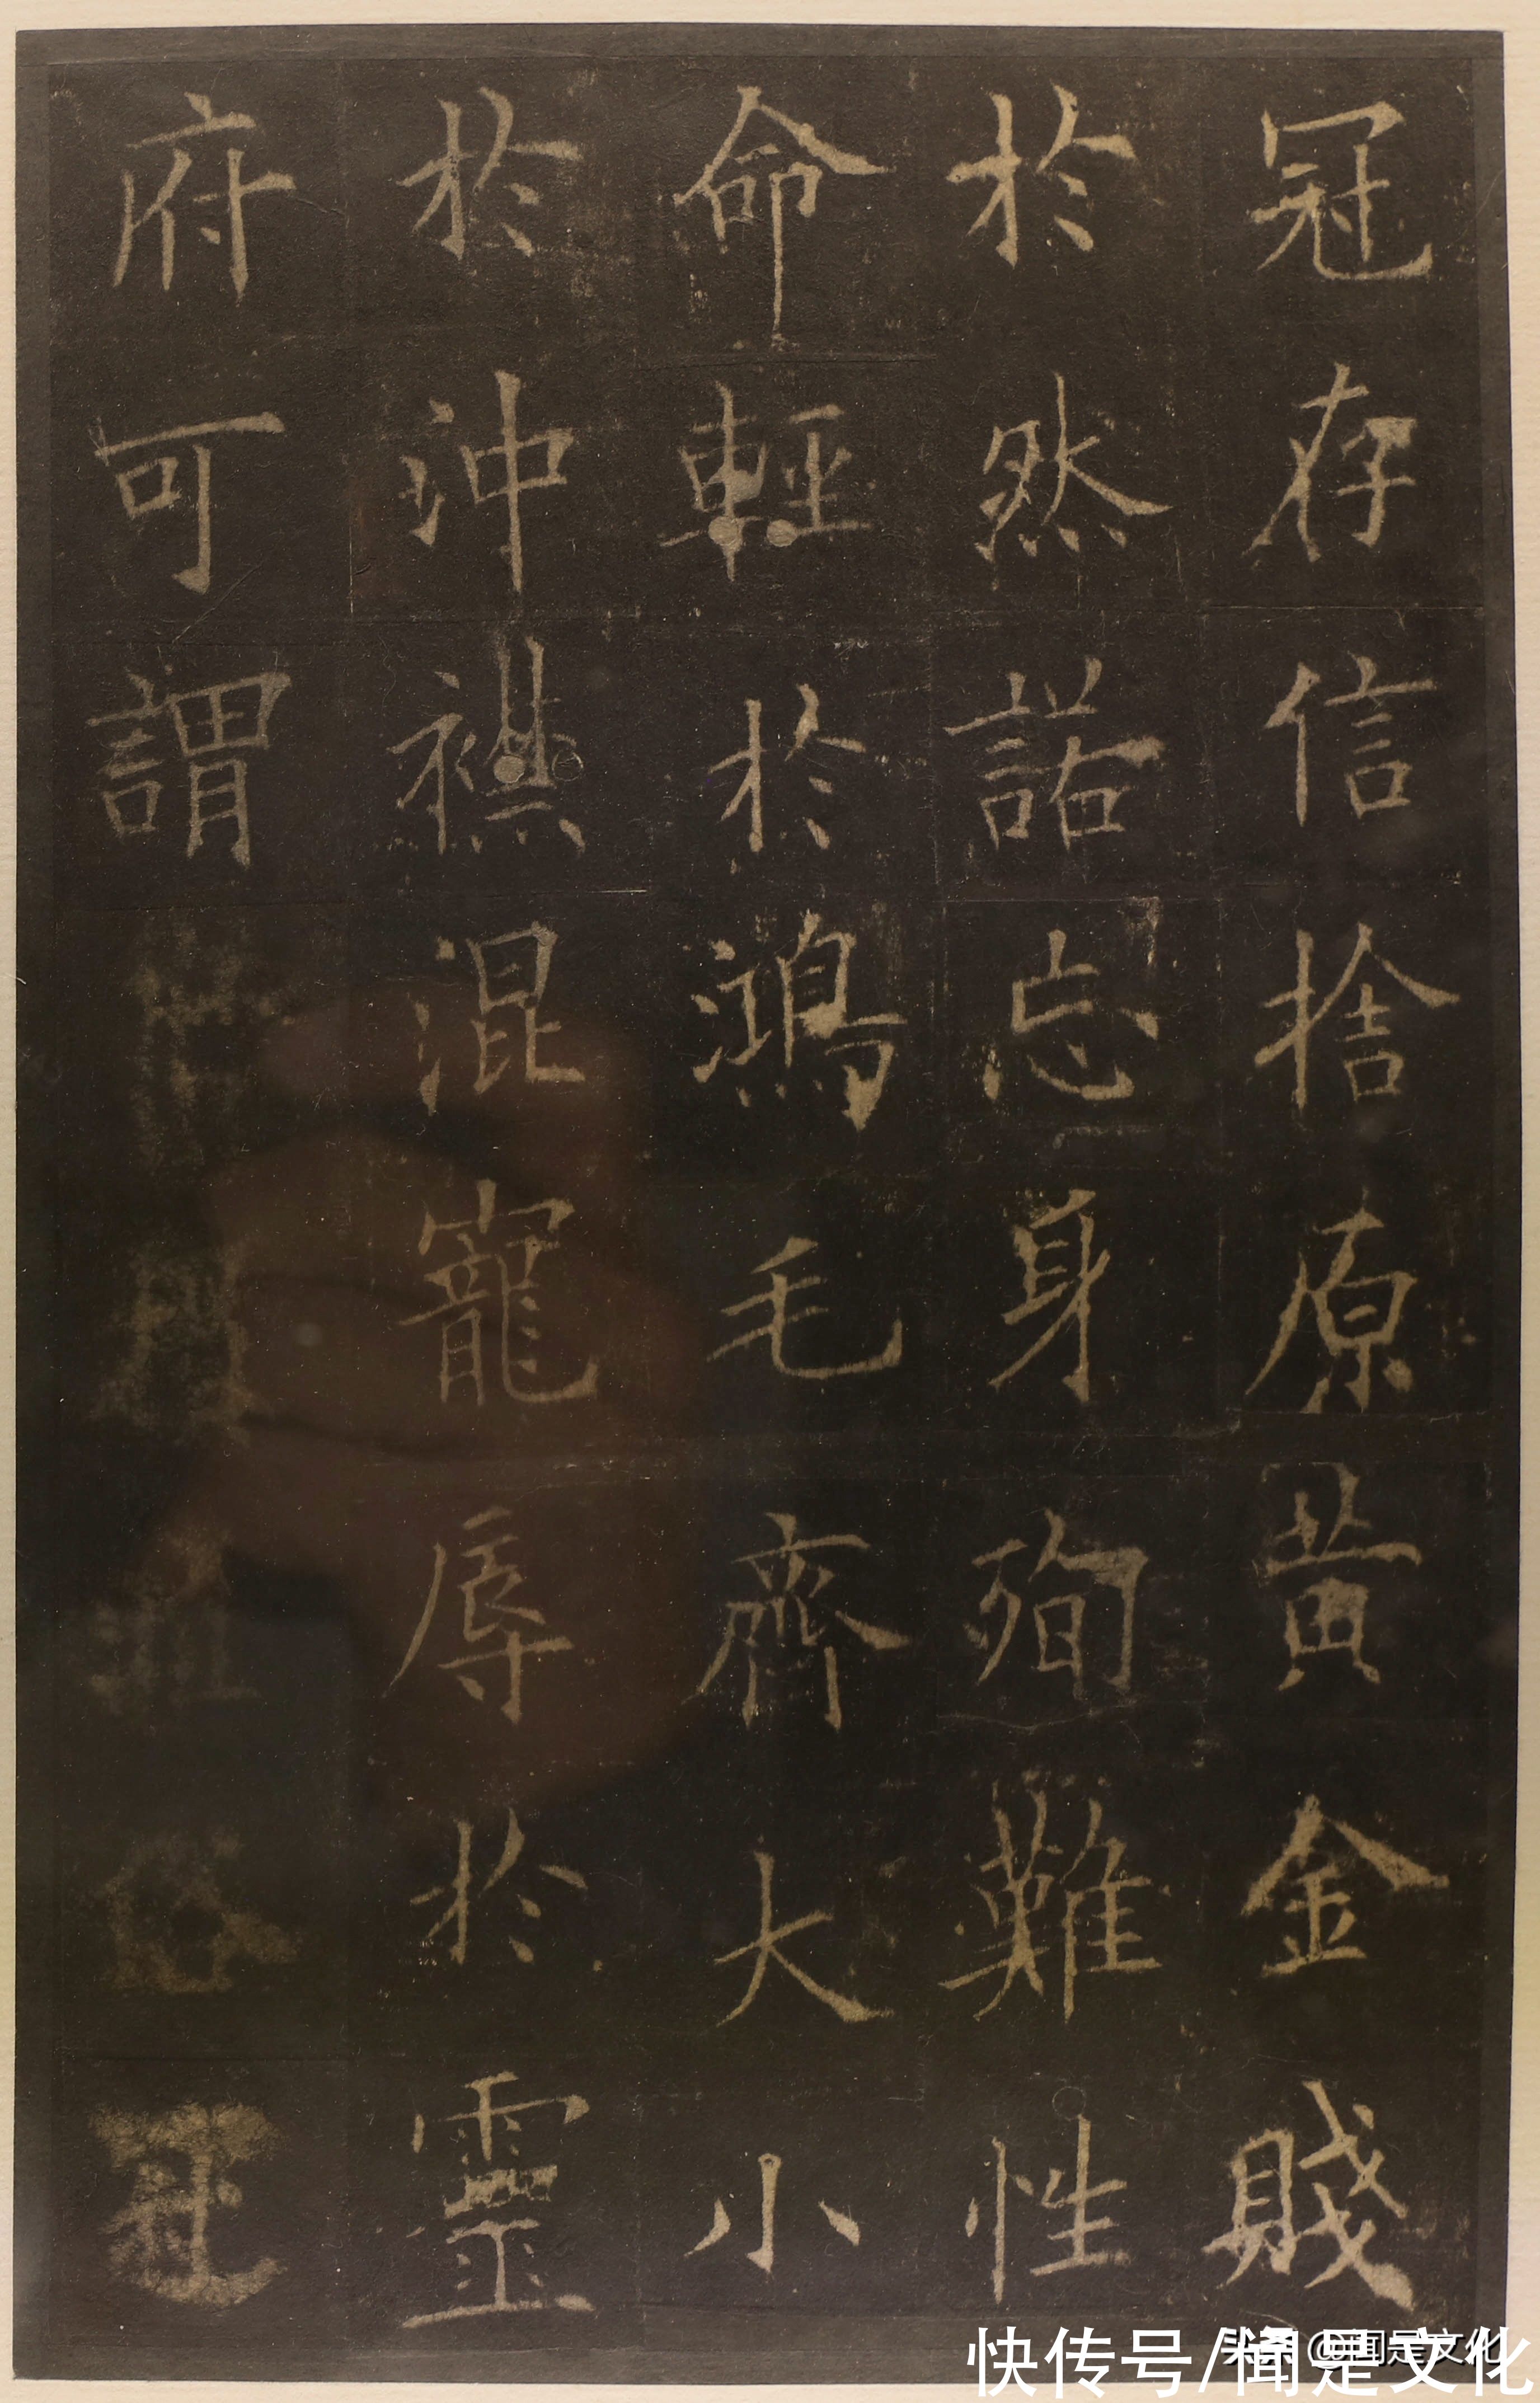 冠存信捨原黄金賤
於然諾忘身殉難性
命輕於鴻毛齊大小
於沖襟混寵辱於靈
府可謂
快传号/闻是文化
头条 @闻是文化